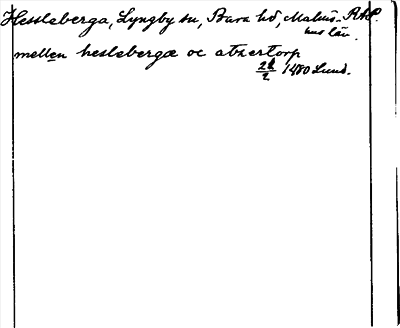 Hessleberga, Lyngby sn, Bara hd, Malmö- RAP.
hus län.
mellen heslebergæ oc atzertorp
22/2 1480 Lund.